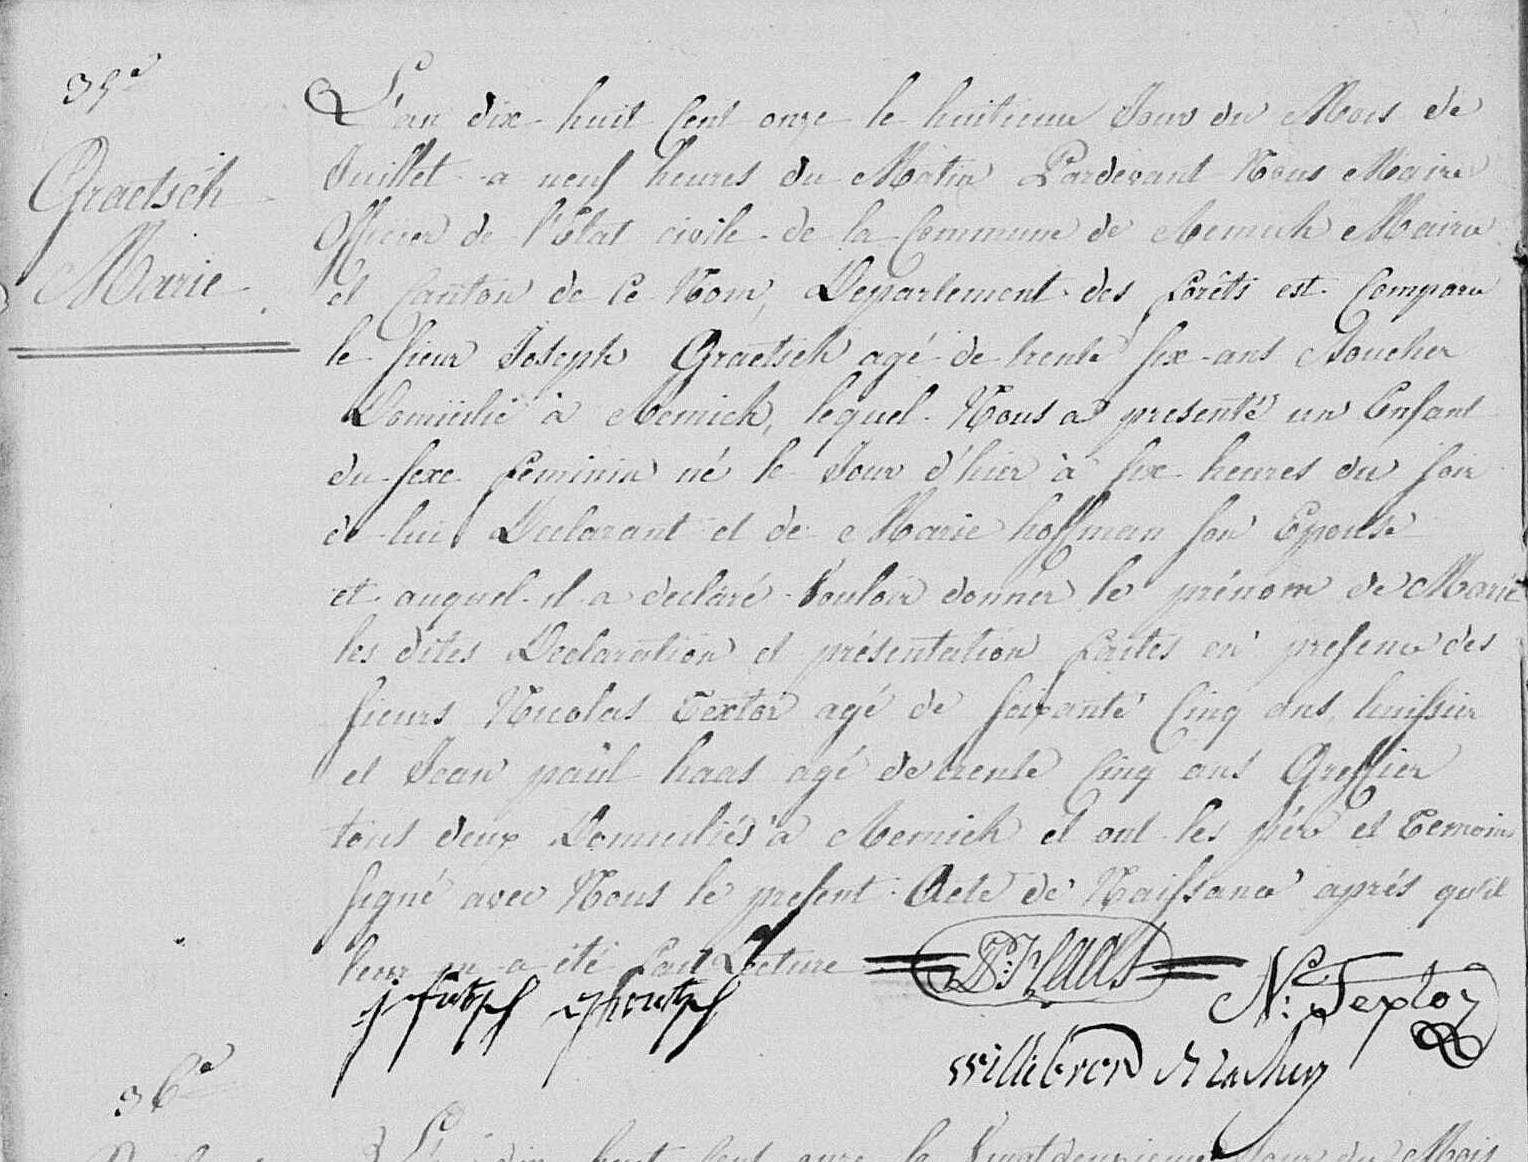 35e
Graetsch
Marie
L'an dix huit Cent onze le huitieme Jour du Mois de
Juillet a neuf heures du Matin Pardevant Nous Maire
Officier de l'Etat civile de la Commune de Remich Mairie
et Canton de Ce Nom, Departement des forêts est Comparu
le sieur Joseph Graetsch agé de trente six ans Boucher
Domicilié à Remich, lequel Nous a presenté un Enfant
du sexe feminin né le Jour d'hier à six heures du soir
de lui Declarant et de Marie hoffman son Epouse
et auquel il a declaré Vouloir donner le prénom de Marie
les dites Declaration et présentation faites en presence des
sieurs Nicolas Textor agé de soixante Cinq ans, huissier
et Jean paul haas agé de trente Cinq ans Greffier
tous deux Domiciliés à Remich et ont les pére et Temoins
signé avec Nous le present Acte de Naissance aprés qu'il
leur en a été fait Lecture
JP: Haas
N: Textor
Willibrord
36e
L'an dix huit Cent onze le Vingtdeuxieme Jour du Mois